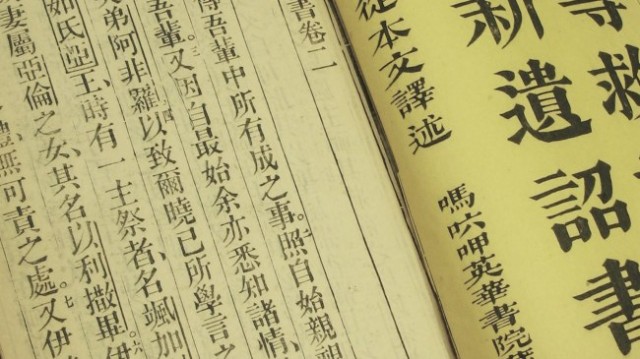 救
新遺詔書
從本文譯述
嗎 呷英華書院
書卷二
傳吾輩中所有成之事。照自始親
吾輩。又因自最始余亦悉知諸情、
兄弟阿非羅、以致爾曉已所學言之
如氏亞王、時有一主祭者、名颯加
妻屬亞倫之女、其名以利撒畢。伊
無可責之處。七又伊